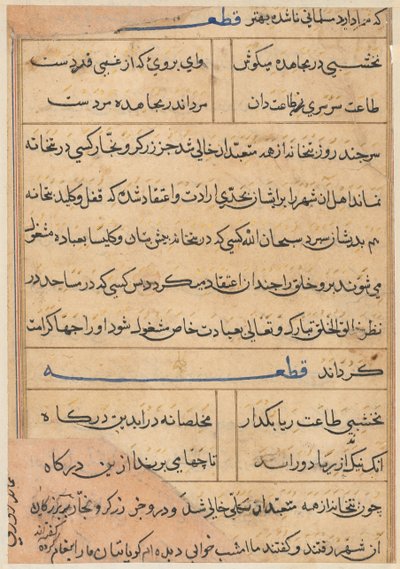 که مرا دارد سلمانی ناشده بهتر قطعه
نخشبی در مجاهده میکوش وای بروی که از غبی فردست
طاعت سرسری نه طاعت دان مرد اندر مجاهده مردست
سر چند روز بتخانه از همه متعبدان خالی شد جز زرکر و نجار کسی در بتخانه
نماند اهل ان شهر را بر ایشان بحدی ارادت و اعتقاد شد که قفل و کلید بتخانه
هم بدیشان سپرد سبحان الله کسی که در بتخانه پیش بتان و کلیسا بعباده مشغول
می شوند برو خلق را چندان اعتقاد میکردد پس کسی که در مساجد در
نظر خالق الخلق تبارک و تعالی بعبادت خاص مشغول شود او را چها کرامت
کرداند قطعه
نخشبی طاعت ریا بکدار مخلصانه در اید بن درکاه
انک نیک از ریا دور اند تا چها می برند از ین درکاه
چون بتخانه از همه متعبدان بکلی خالی شد و در و جز زرکر و نجار بر بزرکان
ان شهر رفتند و کفتند ما امشب خوابی دیده ایم کویا بتان ما را پیغام کرده